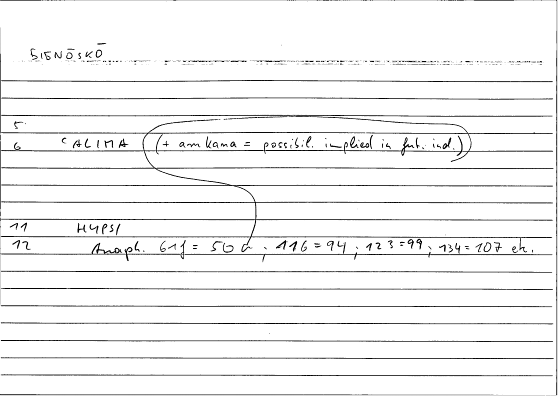 GIGNŌSKŌ
5
6 ʿALIMA (+ an kana = possibil. implied in fut. ind.)
11 HYPSI
12 Anaph. 61f = 50 ; 116 = 94 ; 123 = 99 ; 134 = 107 etc.